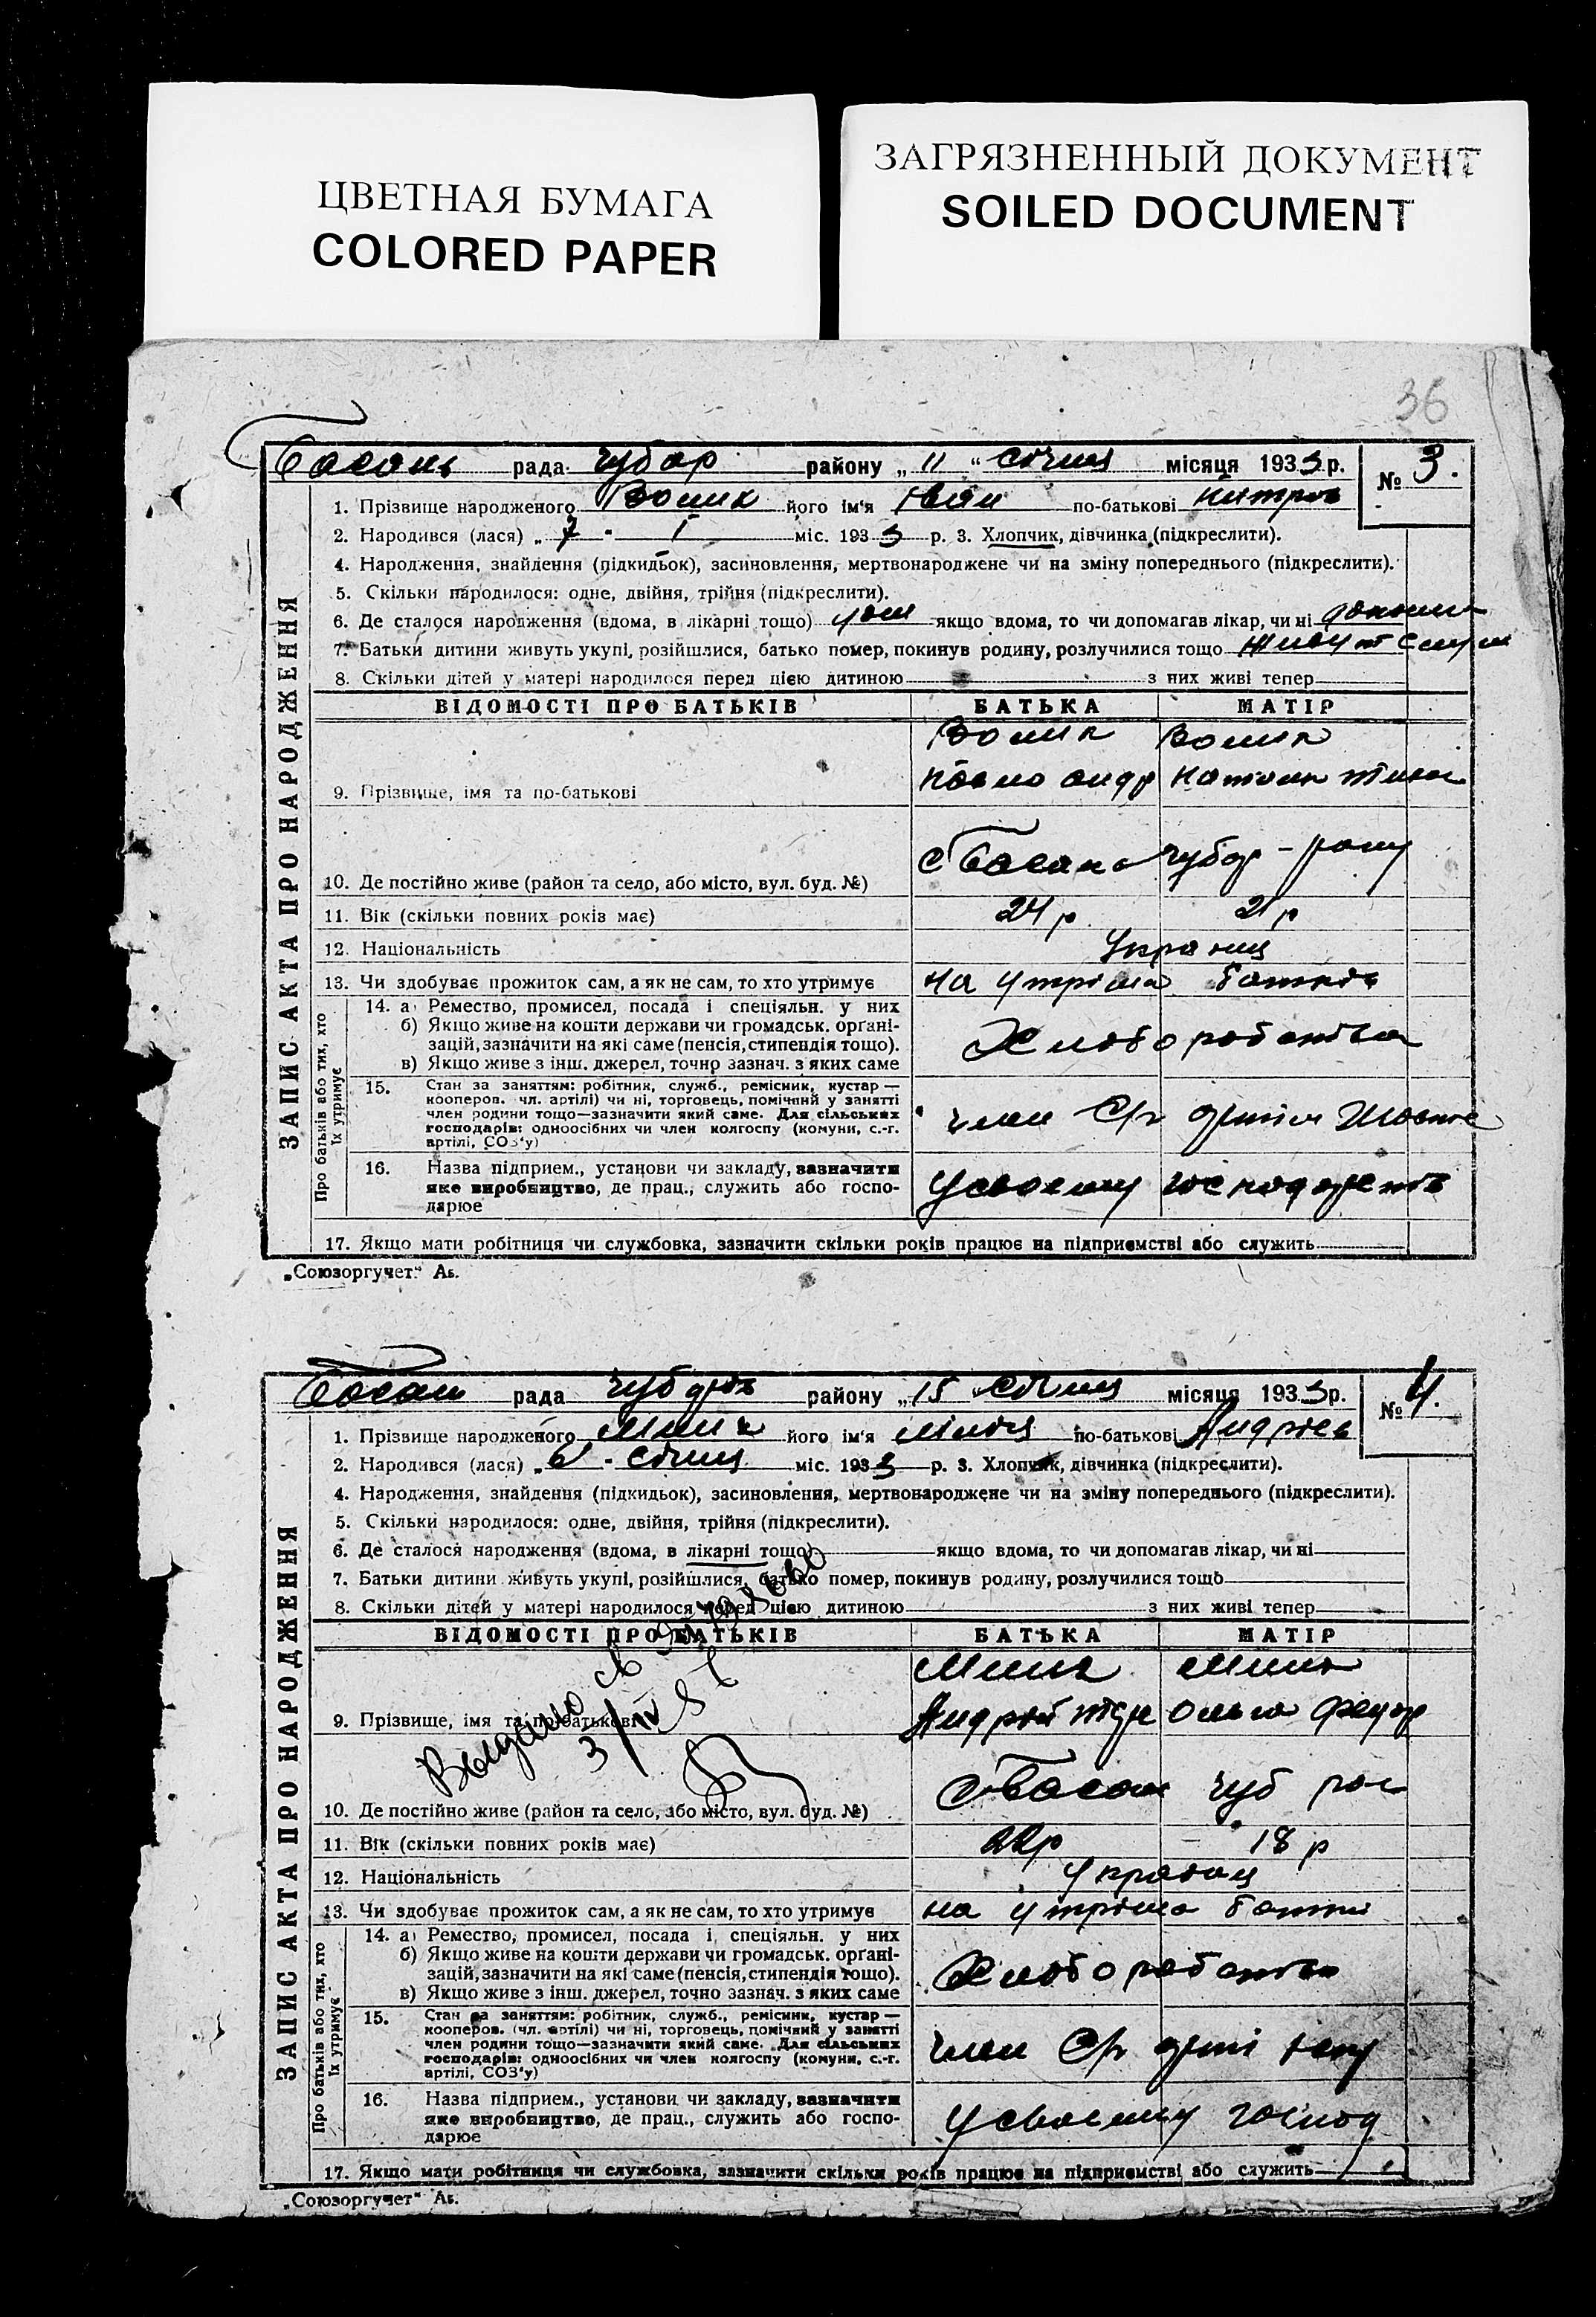 ЦВЕТНАЯ БУМАГА
COLORED PAPER
ЗАГРЯЗНЕННЫЙ ДОКУМЕНТ
SOILED DOCUMENT
36
ЗАПИС АКТА ПРО НАРОДЖЕННЯ
Басань рада Чубар району „ 11 “ січня місяця 1933 р. № 3.
1. Прізвище народженого Волик його ім'я Іван по-батькові
2. Народився (лася) „ 7 " I міс. 1933 р. 3. Хлопчик, дівчинка (підкреслити).
4. Народження, знайдення (підкидьок), засиновлення, мертвонароджене чи на зміну попереднього (підкреслити).
5. Скільки народилося: одне, двійня, трійня (підкреслити).
6. Де сталося народження (вдома, в лікарні тощо) якщо вдома, то чи допомагав лікар, чи ні
7. Батьки дитини живуть укупі, розійшлися, батько помер, покинув родину, розлучилися тощо
8. Скільки дітей у матері народилося перед цією дитиною з них живі тепер
ВІДОМОСТІ ПРО БАТЬКІВ БАТЬКА МАТІР
Волик Волик
9. Прізвище, імя та по-батькові
10. Де постійно живе (район та село, або місто, вул. буд. №) с Басань Чубар-
11. Вік (скільки повних років має) 24 р 21 р
12. Національність Украінц
13. Чи здобуває прожиток сам, а як не сам, то хто утримує на утріма батків
Про батьків або тих, хто їх утримує
14. а) Ремество, промисел, посада і спеціяльн. у них
б) Якщо живе на кошти держави чи громадськ. організацій, зазначити на які саме (пенсія, стипендія тощо).
в) Якщо живе з інш. джерел, точно зазнач. з яких саме
Хліборобство
15. Стан за заняттям: робітник, служб., ремісник, кустар —
кооперов. (чл. артілі) чи ні, торговець, помічний у занятті
член родини тощо—зазначити який саме. Для сільських
господарів: одноосібних чи член колгоспу (комуни, с.-г.
артілі, СОЗ'у)
член С/г артіл
16. Назва підприєм., установи чи закладу, зазначити
яке виробництво, де прац., служить або госпо-
дарює
У своєму
17. Якщо мати робітниця чи службовка, зазначити скільки років працює на підприємстві або служить
„Союзоргучет“ Аъ.
ЗАПИС АКТА ПРО НАРОДЖЕННЯ
Басан рада району „ 15 січня місяця 1933 р. № 4.
1. Прізвище народженого його ім'я по-батькові Андріев
2. Народився (лася) „ 6 " січня міс. 1933 р. 3. Хлопчик, дівчинка (підкреслити).
4. Народження, знайдення (підкидьок), засиновлення, мертвонароджене чи на зміну попереднього (підкреслити).
5. Скільки народилося: одне, двійня, трійня (підкреслити).
6. Де сталося народження (вдома, в лікарні тощо) якщо вдома, то чи допомагав лікар, чи ні
7. Батьки дитини живуть укупі, розійшлися, батько помер, покинув родину, розлучилися тощо
8. Скільки дітей у матері народилося перед цією дитиною з них живі тепер
ВІДОМОСТІ ПРО БАТЬКІВ БАТЬКА МАТІР
Андрій Ольга Федор
9. Прізвище, імя та по-батькові
Выдано св
3/IV
10. Де постійно живе (район та село, або місто, вул. буд. №) с Басан Чуб
11. Вік (скільки повних років має) 22 р 18 р
12. Національність Украінц
13. Чи здобуває прожиток сам, а як не сам, то хто утримує на утріма
Про батьків або тих, хто їх утримує
14. а) Ремество, промисел, посада і спеціяльн. у них
б) Якщо живе на кошти держави чи громадськ. організацій, зазначити на які саме (пенсія, стипендія тощо).
в) Якщо живе з інш. джерел, точно зазнач. з яких саме
Хліборобство
15. Стан за заняттям: робітник, служб., ремісник, кустар —
кооперов. (чл. артілі) чи ні, торговець, помічний у занятті
член родини тощо—зазначити який саме. Для сільських
господарів: одноосібних чи член колгоспу (комуни, с.-г.
артілі, СОЗ'у)
член С/г арті
16. Назва підприєм., установи чи закладу, зазначити
яке виробництво, де прац., служить або госпо-
дарює
У своєму господ
17. Якщо мати робітниця чи службовка, зазначити скільки років працює на підприємстві або служить
„Союзоргучет“ Аъ.